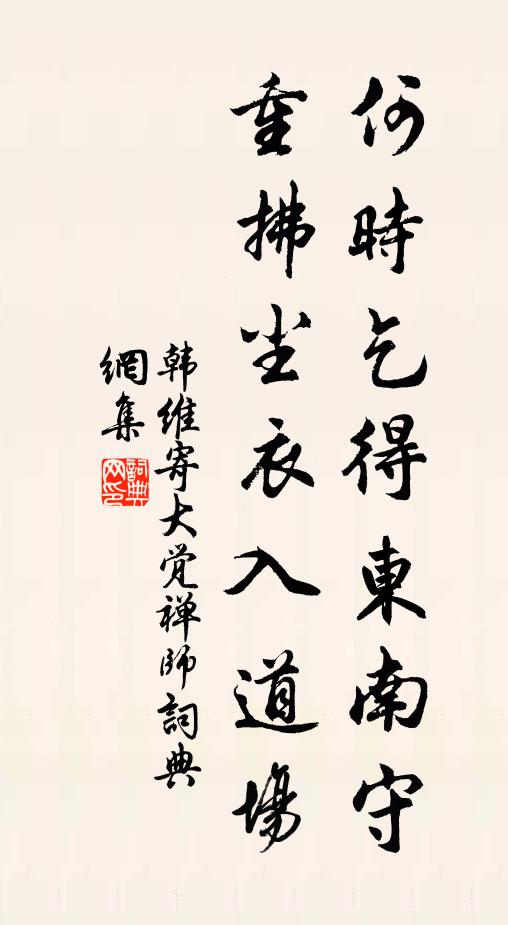 何時乞得東南守
重拂尘衣入道場
韩维寄大觉禅師詞典
網集
詞典
网印